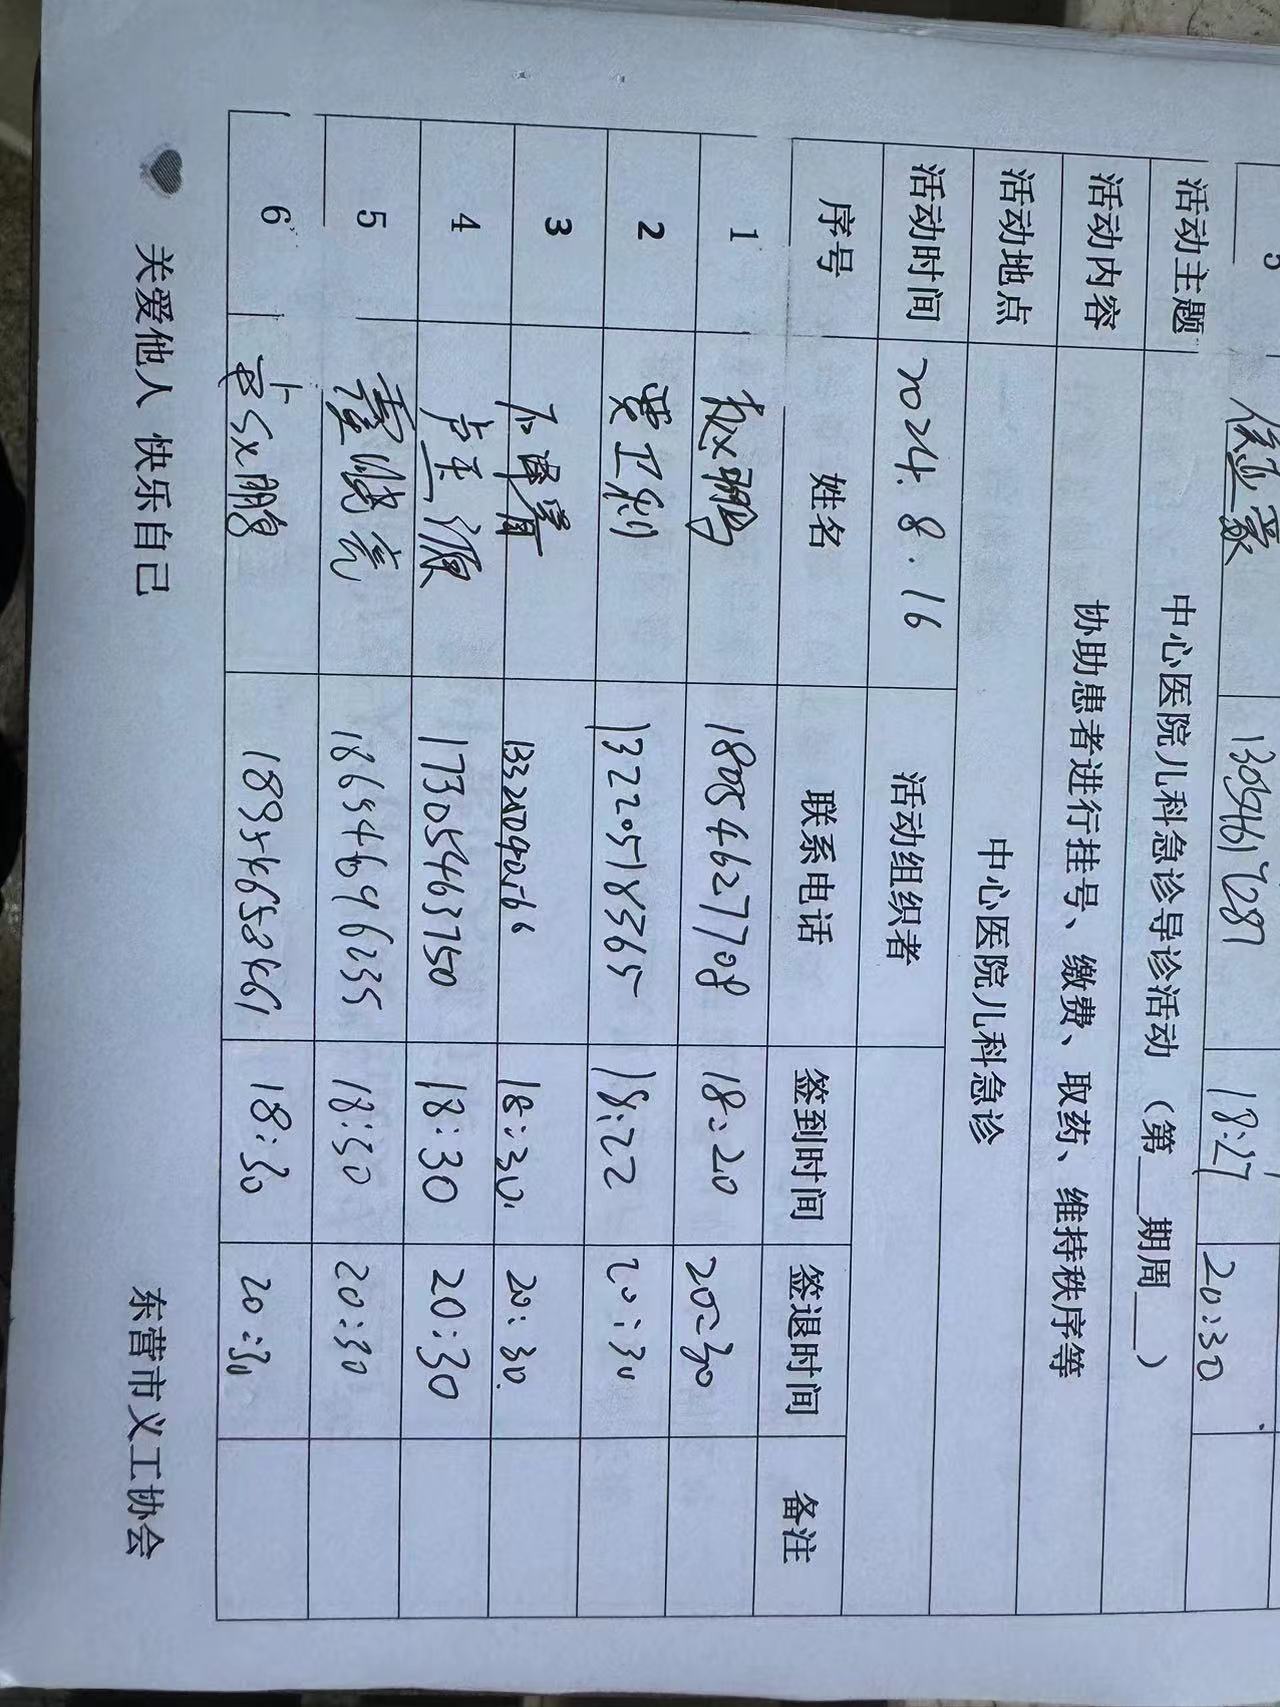 5 13054617287 18:27 20:30
活动主题 中心医院儿科急诊导诊活动 （第__期周__）
活动内容 协助患者进行挂号、缴费、取药、维持秩序等
活动地点 中心医院儿科急诊
活动时间 2024.8.16 活动组织者
序号 姓名 联系电话 签到时间 签退时间 备注
1 18054627708 18:20 20:30
2 贾卫利 13220518365 18:22 20:30
3 18:30 20:30
4 17305463750 18:30 20:30
5 18654696235 18:30 20:30
6 18954658461 18:30 20:30
关爱他人 快乐自己 东营市义工协会